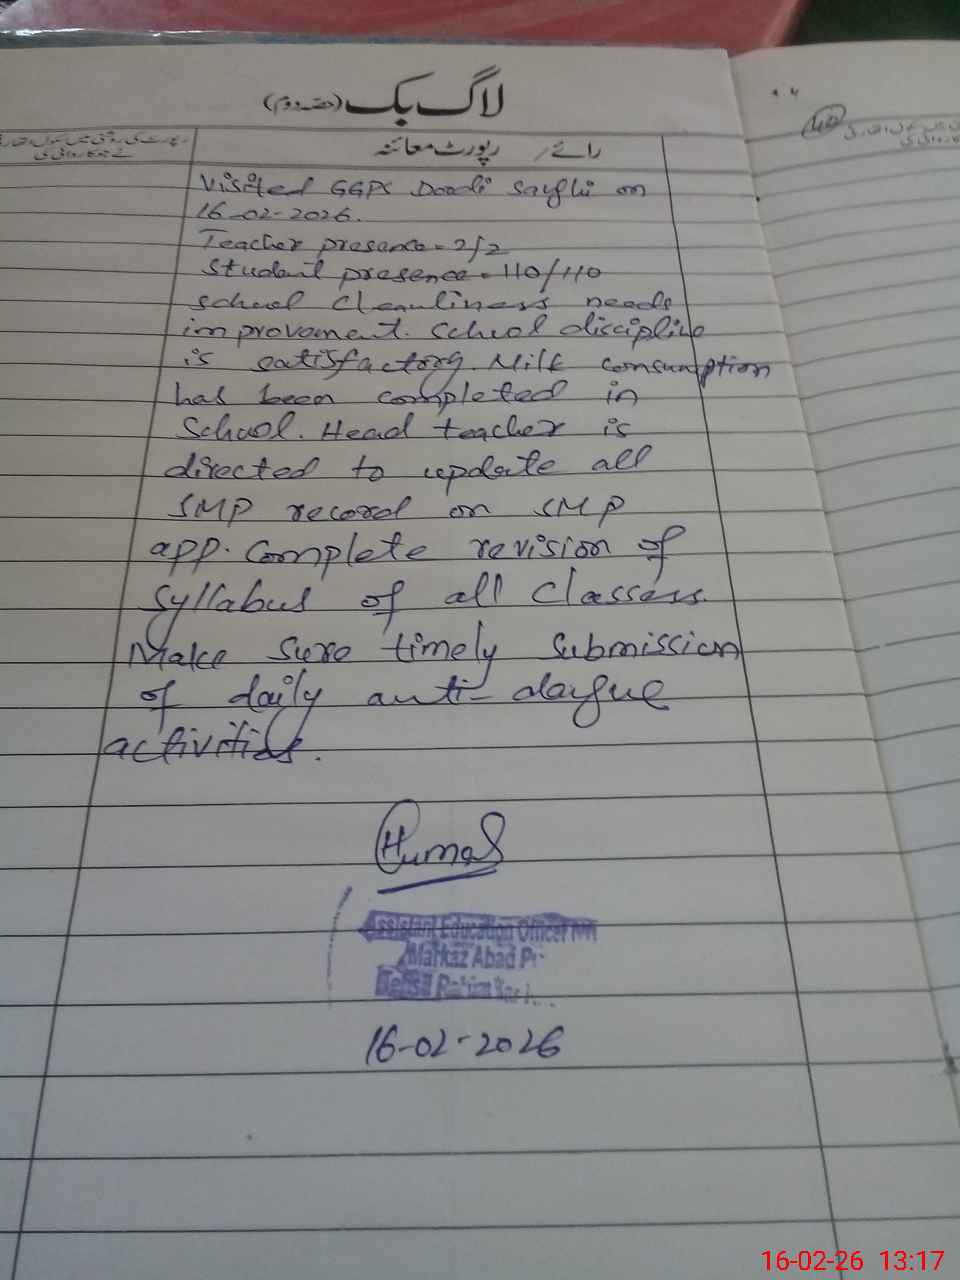 لاگ بک (حصہ دوم)
رائے / رپورٹ معائنہ
رپورٹ کی روشنی میں سکول
Visited GGPS Daadi Sayghi on
16-02-2026.
Teacher presence = 2/2
Student presence = 110/110
School Cleanliness needs
improvement. School discipline
is satisfactory. Milk consumption
has been completed in
School. Head teacher is
directed to update all
SMP record on SMP
app. Complete revision of
Syllabus of all Classess.
Make Sure timely Submission
of daily anti-dengue
activities.
Huma
Assistant Education Officer
Markaz Abad
16-02-2026
16-02-26 13:17